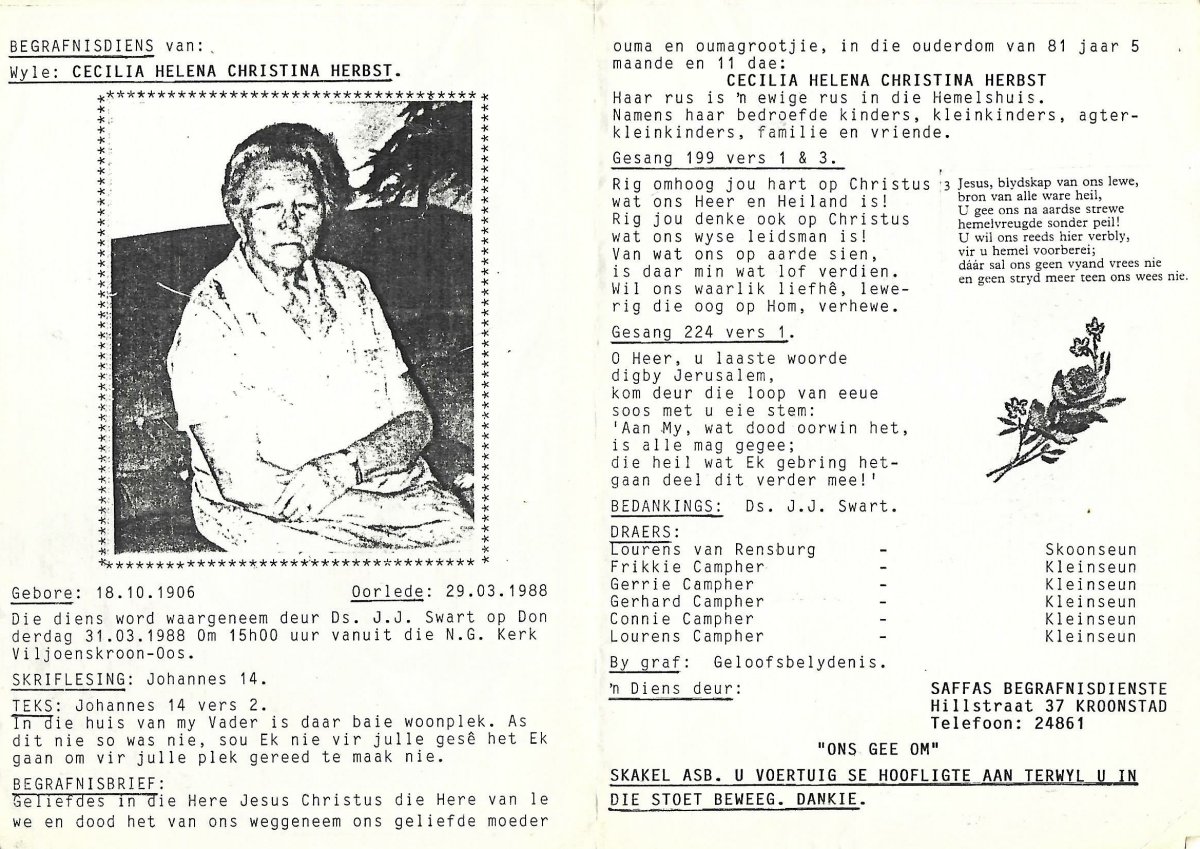 BEGRAFNISDIENS van:
Wyle: CECILIA HELENA CHRISTINA HERBST.
Gebore: 18.10.1906 Oorlede: 29.03.1988
Die diens word waargeneem deur Ds. J.J. Swart op Don
derdag 31.03.1988 Om 15h00 uur vanuit die N.G. Kerk
Viljoenskroon-Oos.
SKRIFLESING: Johannes 14.
TEKS: Johannes 14 vers 2.
In die huis van my Vader is daar baie woonplek. As
dit nie so was nie, sou Ek nie vir julle gesê het Ek
gaan om vir julle plek gereed te maak nie.
BEGRAFNISBRIEF:
Geliefdes in die Here Jesus Christus die Here van le
we en dood het van ons weggeneem ons geliefde moeder
ouma en oumagrootjie, in die ouderdom van 81 jaar 5
maande en 11 dae:
CECILIA HELENA CHRISTINA HERBST
Haar rus is 'n ewige rus in die Hemelshuis.
Namens haar bedroefde kinders, kleinkinders, agter-
kleinkinders, familie en vriende.
Gesang 199 vers 1 & 3.
Rig omhoog jou hart op Christus
wat ons Heer en Heiland is!
Rig jou denke ook op Christus
wat ons wyse leidsman is!
Van wat ons op aarde sien,
is daar min wat lof verdien.
Wil ons waarlik liefhê, lewe-
rig die oog op Hom, verhewe.
3 Jesus, blydskap van ons lewe,
bron van alle ware heil,
U gee ons na aardse strewe
hemelvreugde sonder peil!
U wil ons reeds hier verbly,
vir u hemel voorberei;
dáár sal ons geen vyand vrees nie
en geen stryd meer teen ons wees nie.
Gesang 224 vers 1.
O Heer, u laaste woorde
digby Jerusalem,
kom deur die loop van eeue
soos met u eie stem:
'Aan My, wat dood oorwin het,
is alle mag gegee;
die heil wat Ek gebring het-
gaan deel dit verder mee!'
BEDANKINGS: Ds. J.J. Swart.
DRAERS:
Lourens van Rensburg - Skoonseun
Frikkie Campher - Kleinseun
Gerrie Campher - Kleinseun
Gerhard Campher - Kleinseun
Connie Campher - Kleinseun
Lourens Campher - Kleinseun
By graf: Geloofsbelydenis.
'n Diens deur: SAFFAS BEGRAFNISDIENSTE
Hillstraat 37 KROONSTAD
Telefoon: 24861
"ONS GEE OM"
SKAKEL ASB. U VOERTUIG SE HOOFLIGTE AAN TERWYL U IN
DIE STOET BEWEEG. DANKIE.